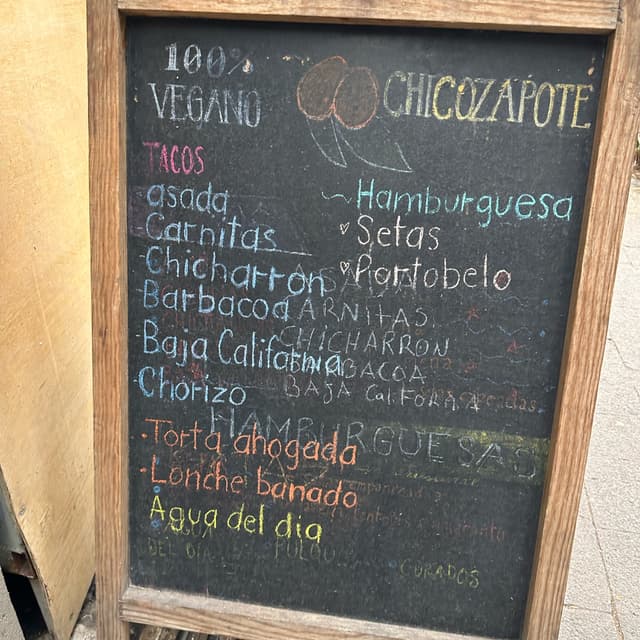 100%
VEGANO
CHICOZAPOTE
TACOS
asada
Carnitas
Chicharron
Barbacoa
Baja California
Chorizo
Hamburguesa
Setas
Portobelo
ASADA
CARNITAS
CHICHARRON
BARBACOA
BAJA CALIFORNIA
HAMBURGUESAS
·Torta ahogada
·Lonche banado
Agua del dia
AGUA
DEL DIA
PULQUE
CURADOS